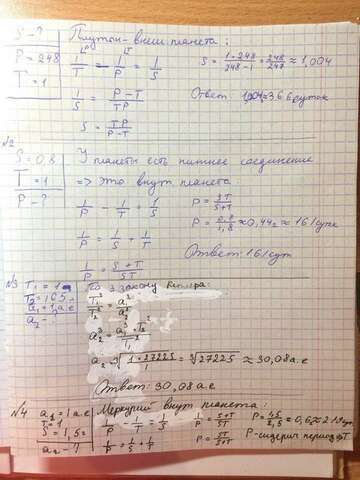 S - ?
P = 248
T = 1
Плутон - внеш планета:
1/T - 1/P = 1/S
1/S = (P - T)/TP
S = TP/(P - T)
S = (1·248)/(248-1) = 248/247 ≈ 1,004
Ответ: 366 суток
№2
S = 0,8
T = 1
P - ?
У планеты есть нижнее соединение
=> это внут планета:
1/P - 1/T = 1/S
1/P = 1/S + 1/T
1/P = (S+T)/ST
P = ST/(S+T)
P = 0,8/1,8 ≈ 0,44г ≈ 161 сут
Ответ: 161 сут
№3
a₂ - ?
По закону Кеплера:
T₁²/T₂² = a₁³/a₂³
a₂³ = a₁³·T₂²/T₁²
a₂ = ³√(1·27225/1) = ³√27225 ≈ 30,08 а.е
Ответ: 30,08 а.е
№4
a₁ = 1 а.е
T = 1
S = 1,5г
a₂ - ?
Меркурий внут планета:
1/P - 1/T = 1/S
1/P = 1/S + 1/T
1/P = (S+T)/ST
P = ST/(S+T)
P - сидерич период